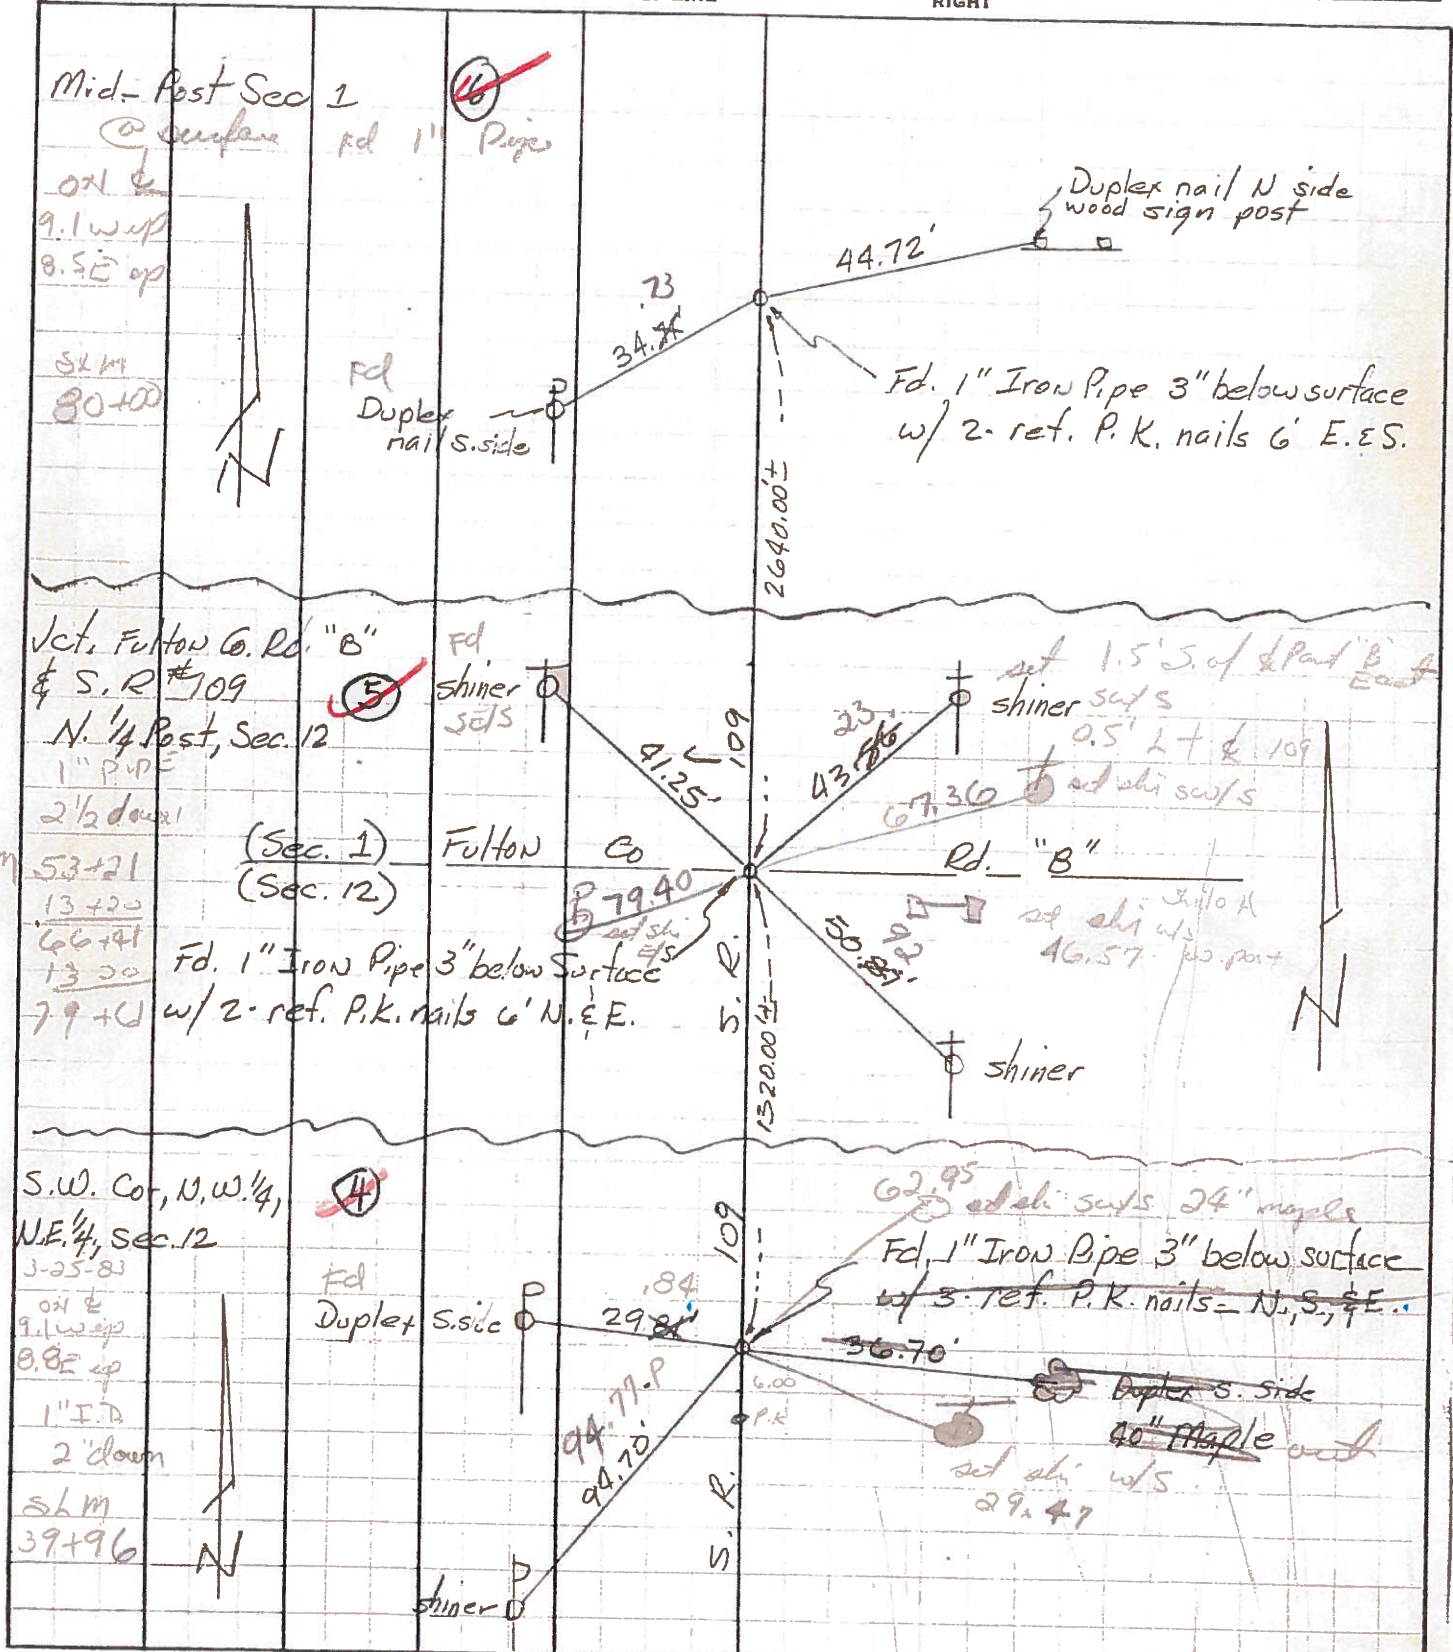 RIGHT
Mid-Post Sec 1
6
@ surface Fd 1" Pipe
ON ℄
9.1 w ep
8.5 E ep
80+00
Duplex nail N side
wood sign post
44.72'
.73
34.
Fd
Duplex
nail s.side
Fd. 1" Iron Pipe 3" below surface
w/ 2- ref. P.K. nails 6' E. & S.
2640.00'±
Jct. Fulton Co. Rd. "B"
& S.R #109
5
N. 1/4 Post, Sec. 12
1" PIPE
2 1/2 down
53+21
13+20
66+41
13 20
79+61
Fd
shiner
SE/S
41.25'
109
23
43.
shiner sw/s
set 1.5' S. of ℄ Road "B" East
0.5' Lt ℄ 109
67.36
set shi sw/s
(Sec. 1)
(Sec. 12)
Fulton Co Rd. "B"
79.40
set shi
E/S
set shi w/s
46.57 w. post
92
50.87'
Fd. 1" Iron Pipe 3" below Surface
w/ 2- ref. P.K. nails 6' N. & E.
S. R.
1320.00'±
shiner
S.W. Cor, N.W. 1/4,
N.E. 1/4, Sec. 12
4
3-25-83
ON ℄
9.1 w ep
8.8 E ep
1" I.P.
2" down
SLM
39+96
Fd
Duplex S.side
.84
29.81'
109
62.95
set shi sw/s 24" maple
Fd. 1" Iron Pipe 3" below surface
w/ 3- ref. P.K. nails - N., S., & E.
36.70'
Duplex S. Side
40" Maple out
6.00
P.K
set shi w/s
29.47
94.77-P
94.70'
S. R.
shiner